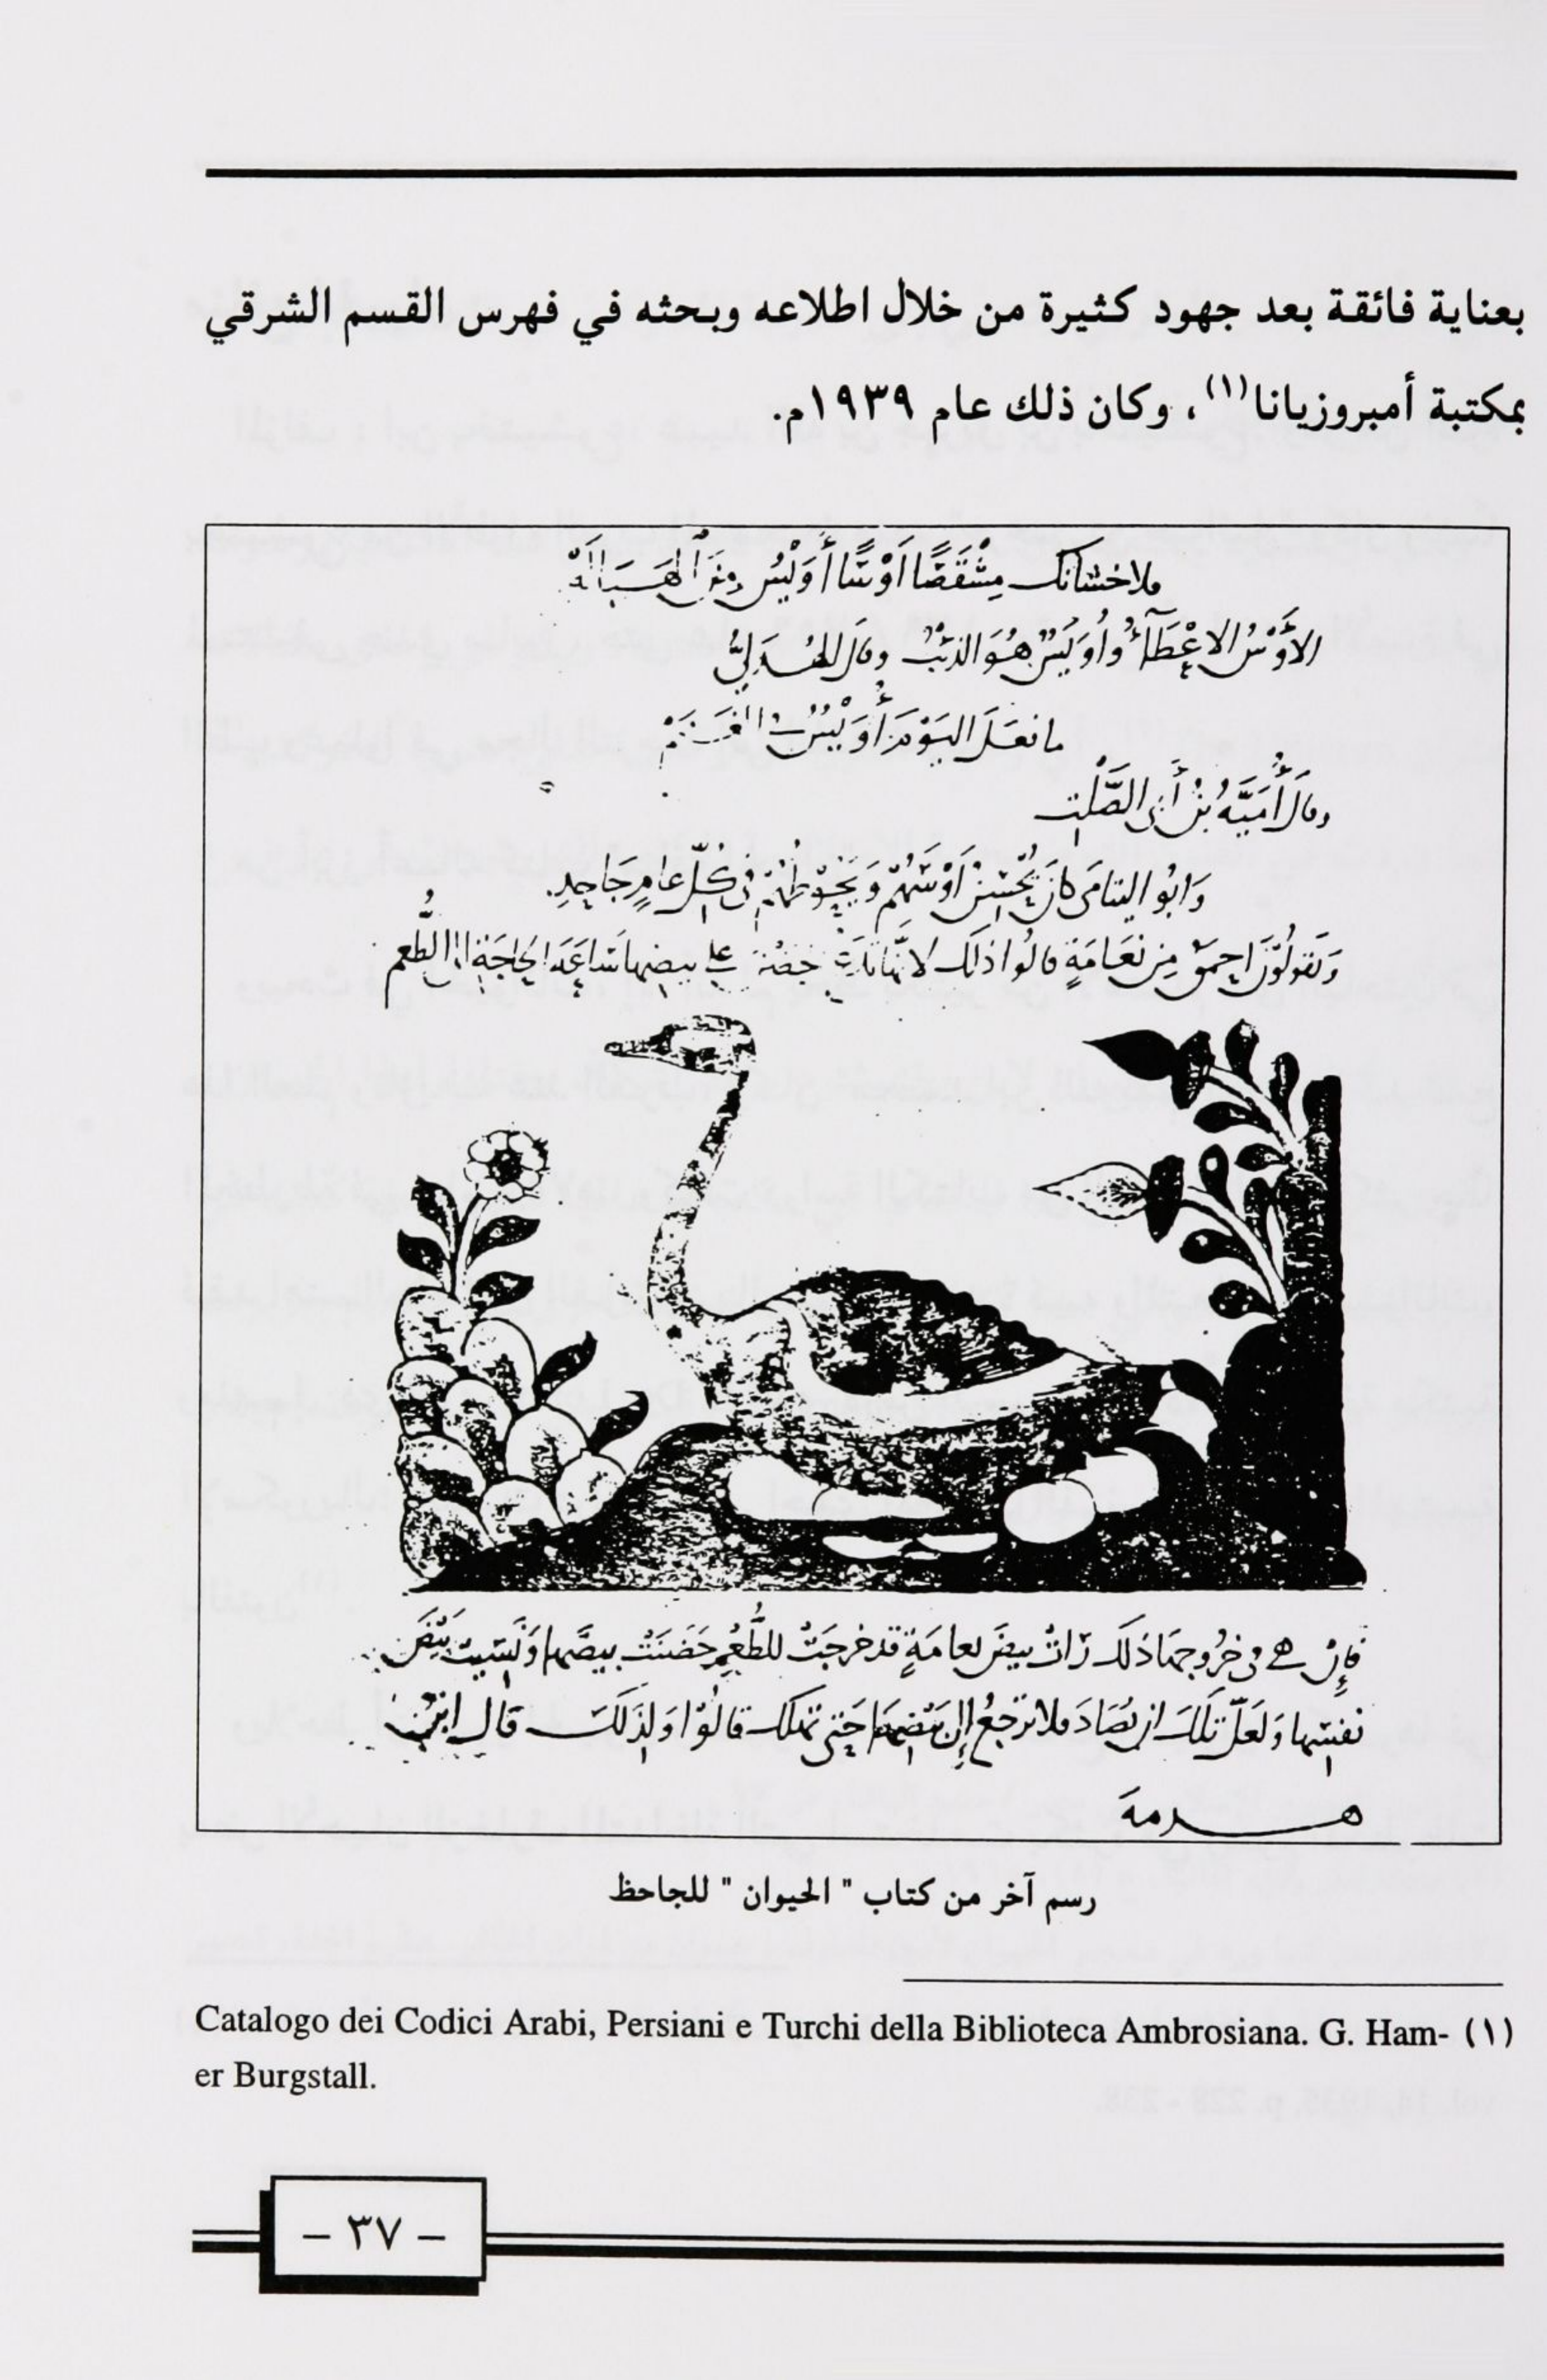 بعناية فائقة بعد جهود كثيرة من خلال اطلاعه وبحثه في فهرس القسم الشرقي
بمكتبة أمبروزيانا(١)، وكان ذلك عام ١٩٣٩م.
فلاحشأنك مِشْقَصًا أَوْسًا أُوَيْسُ من الهَبَالَهْ
الأَوْسُ الاعْطَآءُ وأُوَيْسٌ هُوَ الذئبُ وقال الهُذَلِيُّ
ما فعَلَ اليَوْمَ أُوَيْسٌ في الغَنَمْ
وقَالَ أُمَيَّةُ بْنُ أَبِي الصَّلْتِ
وَابُو اليتامَى كانَ يُحْسِنُ أَوْسَهُمْ وَيَحُوطُهُمْ فى كُلِّ عامٍ جَاحِدِ.
وَيَقُولُوْنَ احمقُ مِنْ نَعَامَةٍ قالُوا ذلك لانَّها تَدَعُ حَضْنَ على بيضِها سَاعَةَ الحَاجَةِ الى الطُّعم
فَإِنْ هى فى خُرُوجِهَا ذلَكَ رَاتْ بيضَ نعامَةٍ قد خرجَتْ للطُّعْمِ حَضَنَتْ بيضَها وَنَسِيتْ بَيْضَ
نفسِها وَلَعَلَّ تلَكَ ان تُصَادَ فلا ترْجعُ إلى بَيْضِهَا حَتىَّ تهلك قالُوْا وَلِذَلكَ قال ابنُ
هــرمةَ
رسم آخر من كتاب " الحيوان " للجاحظ
(١) Catalogo dei Codici Arabi, Persiani e Turchi della Biblioteca Ambrosiana. G. Ham-
er Burgstall.
– ٣٧ –